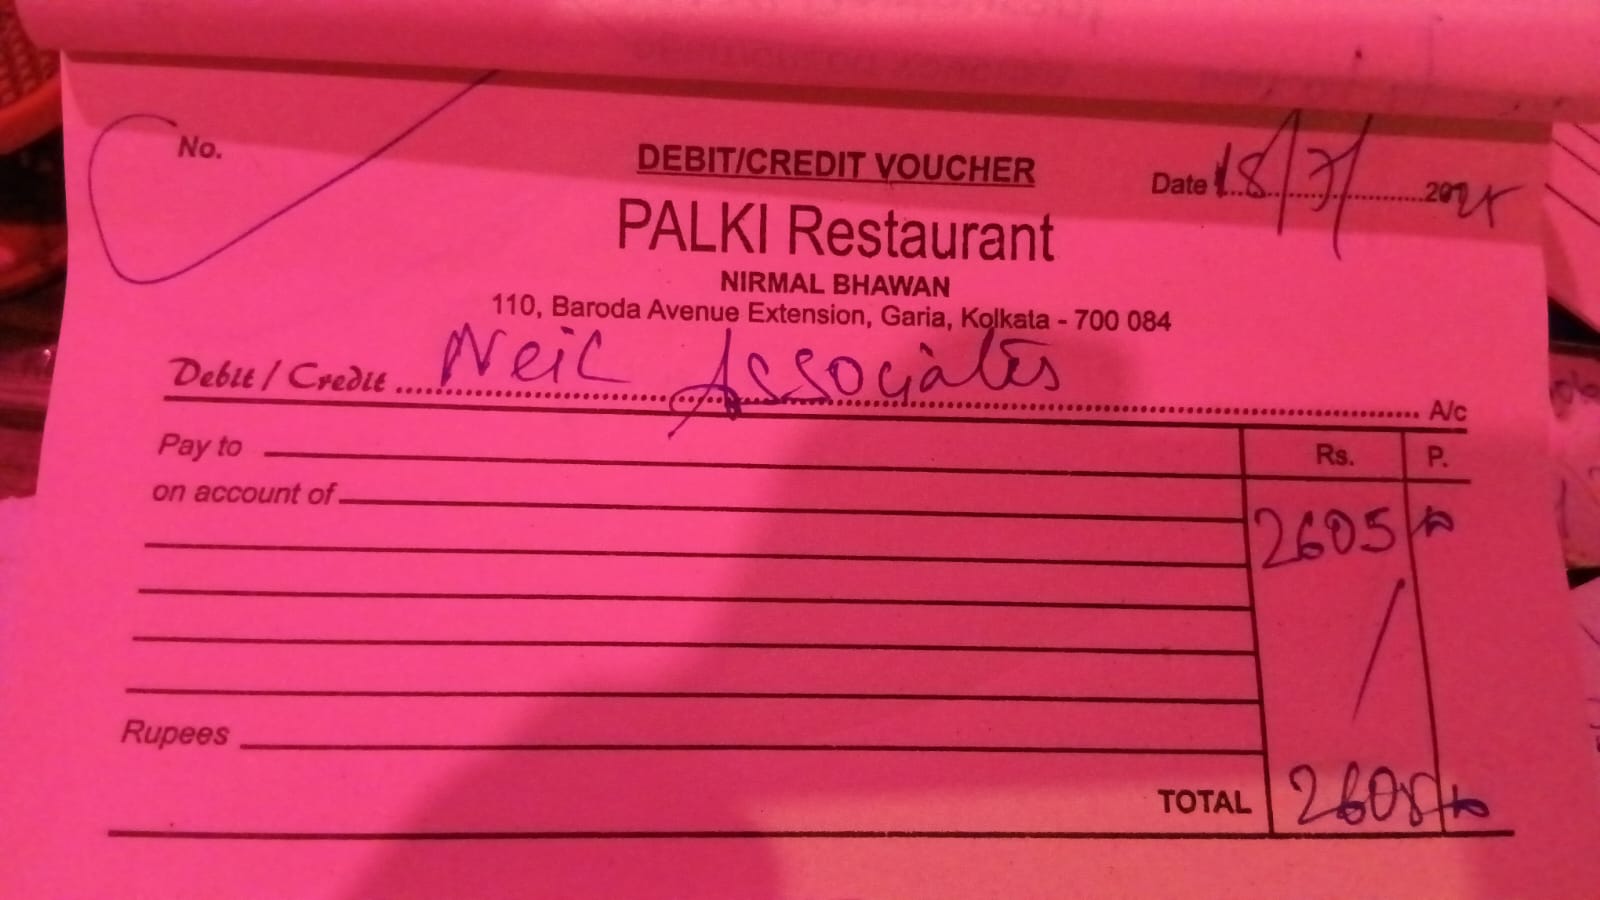 No.
DEBIT/CREDIT VOUCHER
Date 18/7/2025
PALKI Restaurant
NIRMAL BHAWAN
110, Baroda Avenue Extension, Garia, Kolkata - 700 084
Debit / Credit Neil Associates A/c
Pay to Rs. P.
on account of
2605
Rupees
TOTAL 2605